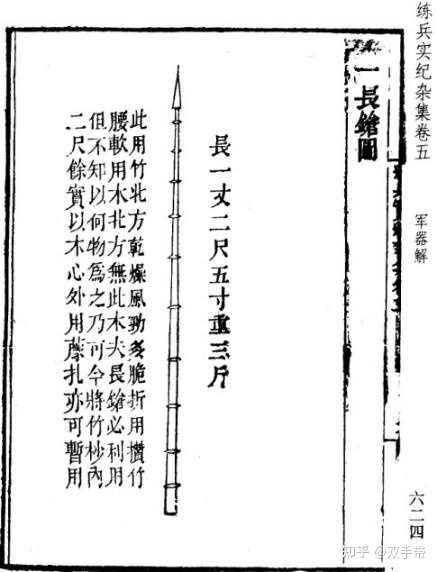 练兵实纪杂集卷五
军器解
六二四
一長鎗圖
長一丈二尺五寸重三斤
此用竹北方乾燥風勁多脆折用攢竹
腰軟用木北方無此木夫長鎗必利用
但不知以何物爲之乃可今將竹杪內
二尺餘實以木心外用藤扎亦可暫用
知乎 @双手带